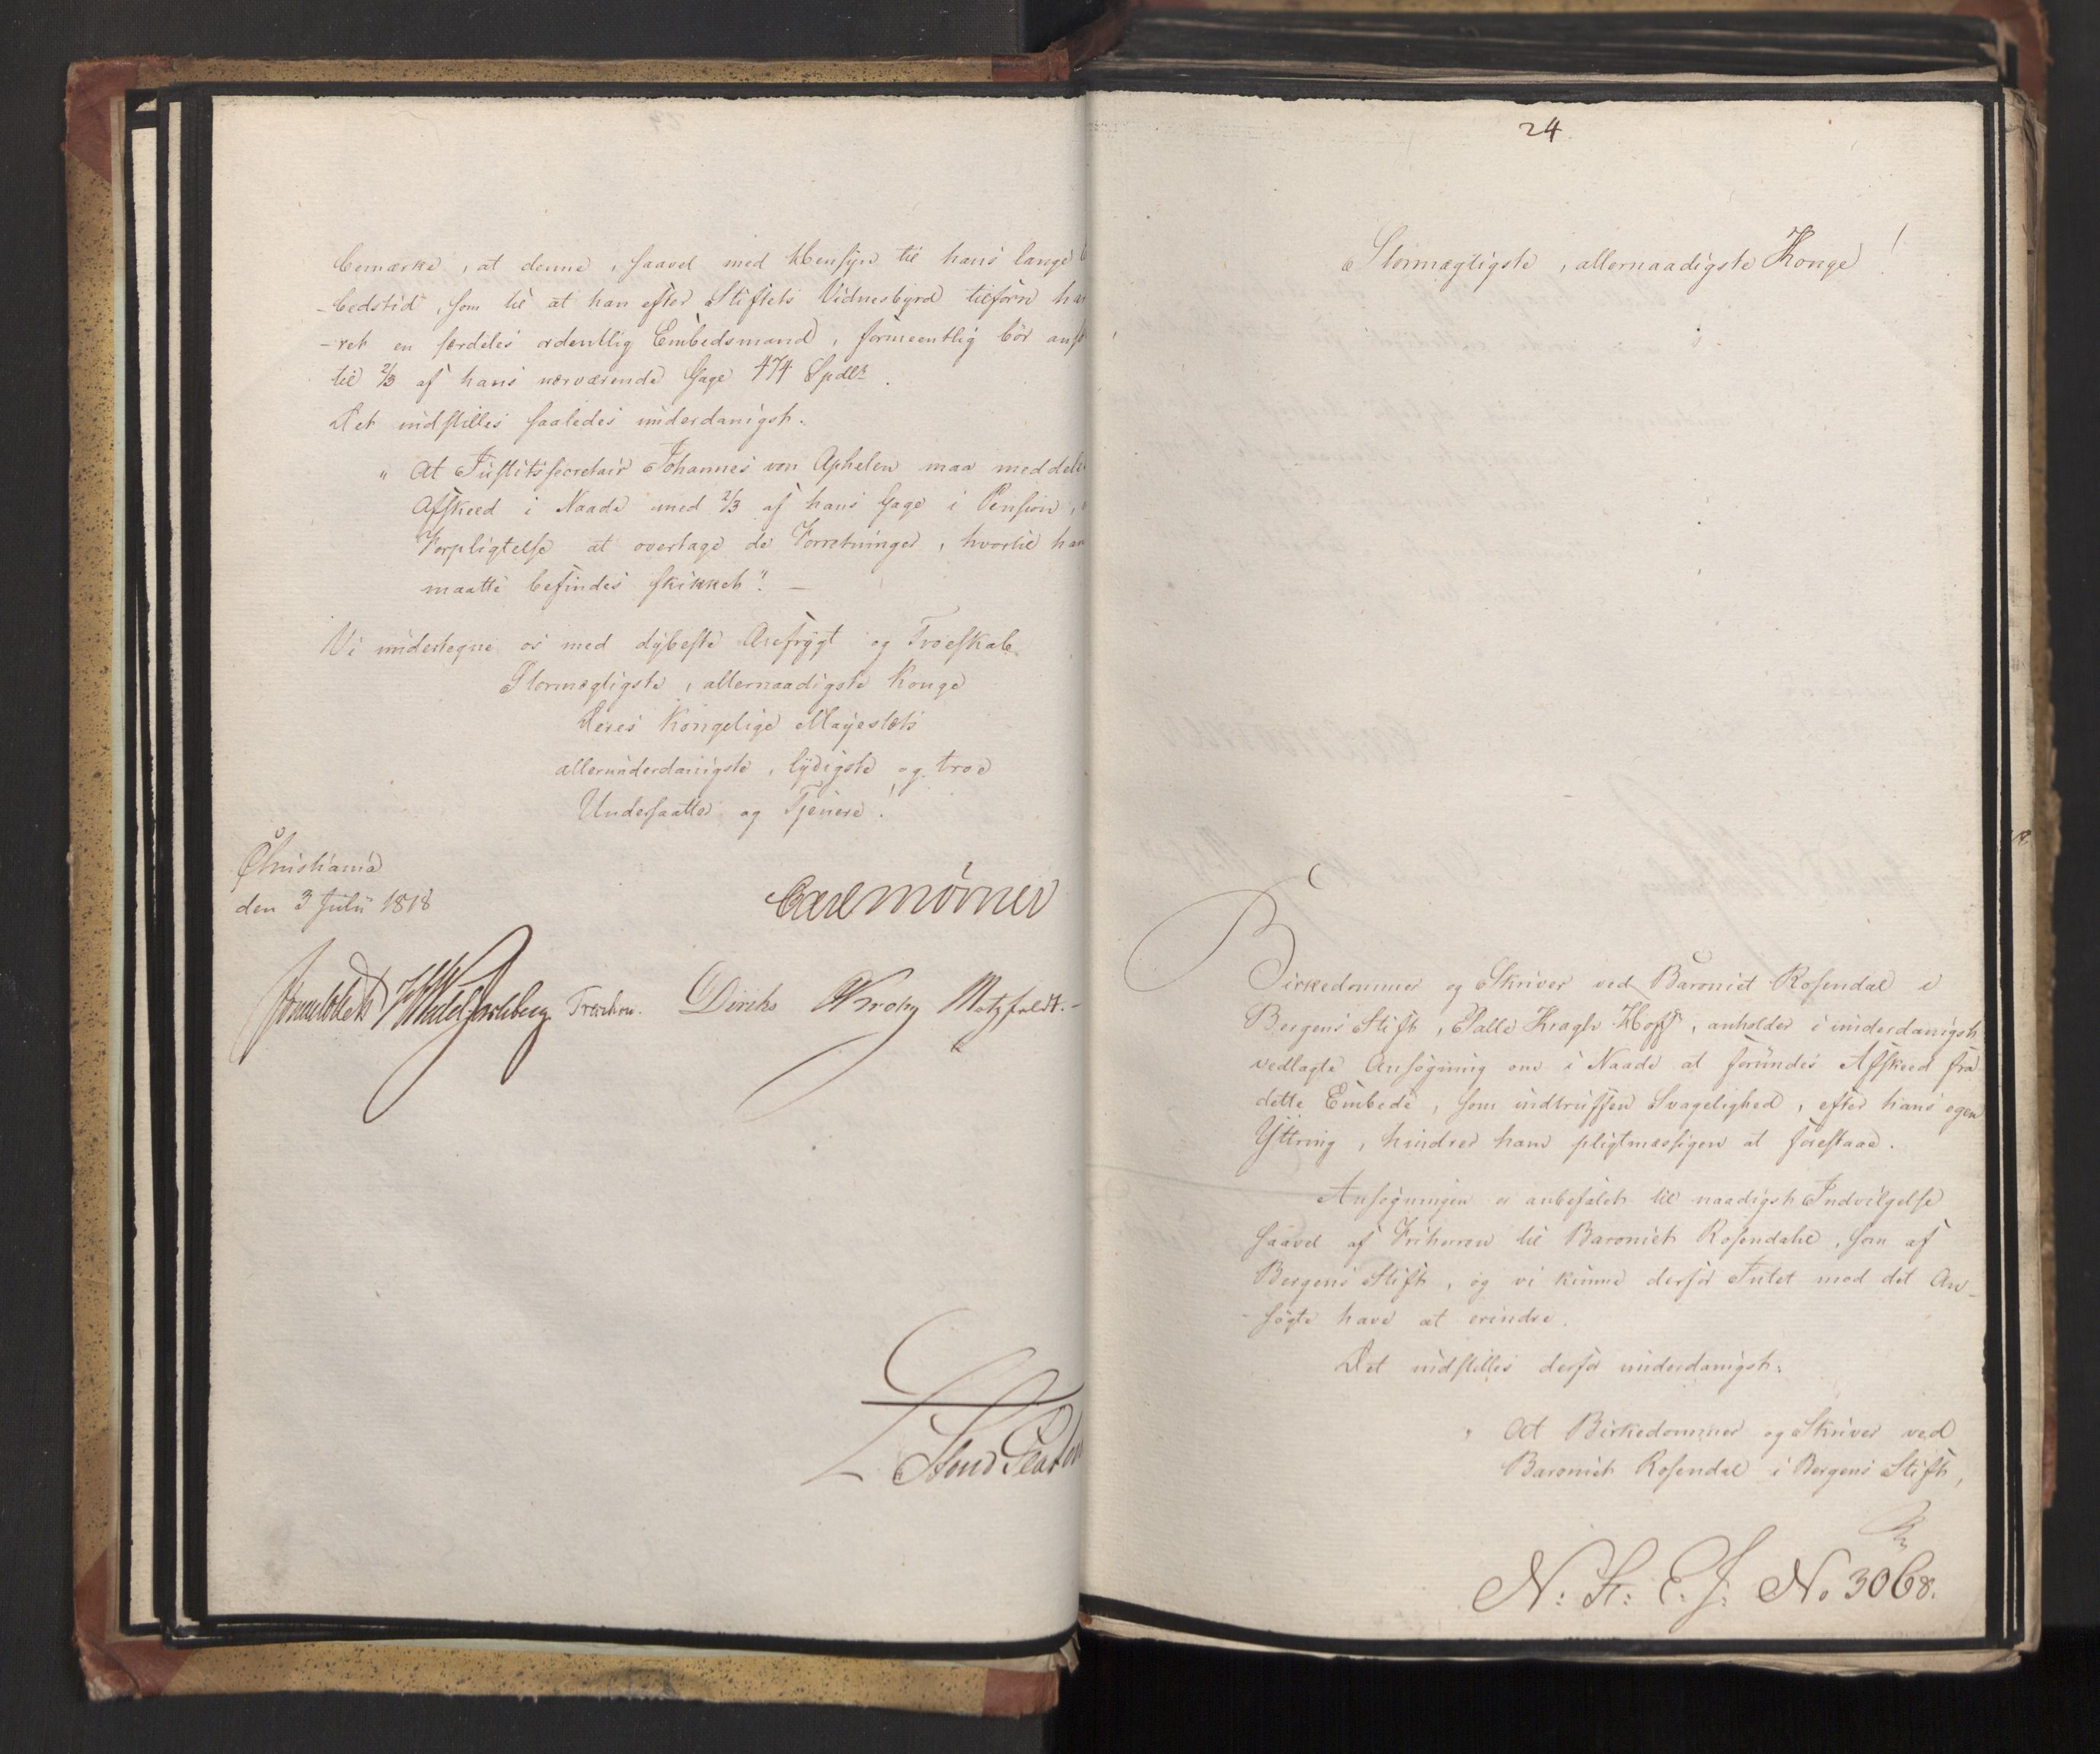 bemærke, at denne, saavel med Hensyn til hans lange
-bedstid, som til at han efter Stiftets Vidnesbyrd tilforn ha
-ret en særdeles ordentlig Embedsmand, formeentlig bør ans
til 2/3 af hans nærværende Gage 474 Spdlr.
Det indstilles saaledes underdanigst:
"At Justitssecretair Johannes von Aphelen maa meddele
Afskeed i Naade med 2/3 af hans Gage i Pension,
Forpligtelse at overtage de Forretninger, hvortil han
maatte befindes skikket". —
Vi undertegne os med dybeste Ærefrygt og Troeskab
Stormægtigste, allernaadigste Konge
Deres Kongelige Majestæts
allerunderdanigste, lydigste og troe
Undersaatter og Tjenere!
Christiania
den 3 Julii 1818
Carl Mörner
Sommerhielm Wedel Jarlsberg Treschow. Diriks Krohg Motzfeldt.
24
Stormægtigste, allernaadigste Konge!
Birkedommer og Skriver ved Baroniet Rosendal i
Bergens Stift, Palle Kragh Hoff, anholder i underdanigst
vedlagte Ansøgning om i Naade at forundes Afskeed fra
dette Embede, som indtruffen Svagelighed, efter hans egen
Yttring, hindrer ham pligtmæssigen at forestaae.
Ansøgningen er anbefalet til naadigst Indvilgelse
saavel af Friherren til Baroniet Rosendahl, som af
Bergens Stift, og vi kunne derfor Intet mod det An-
-søgte have at erindre.
Det indstilles derfor underdanigst:
"At Birkedommer og Skriver ved
Baroniet Rosendal i Bergens Stift,
N: St: E. J: No 3068.